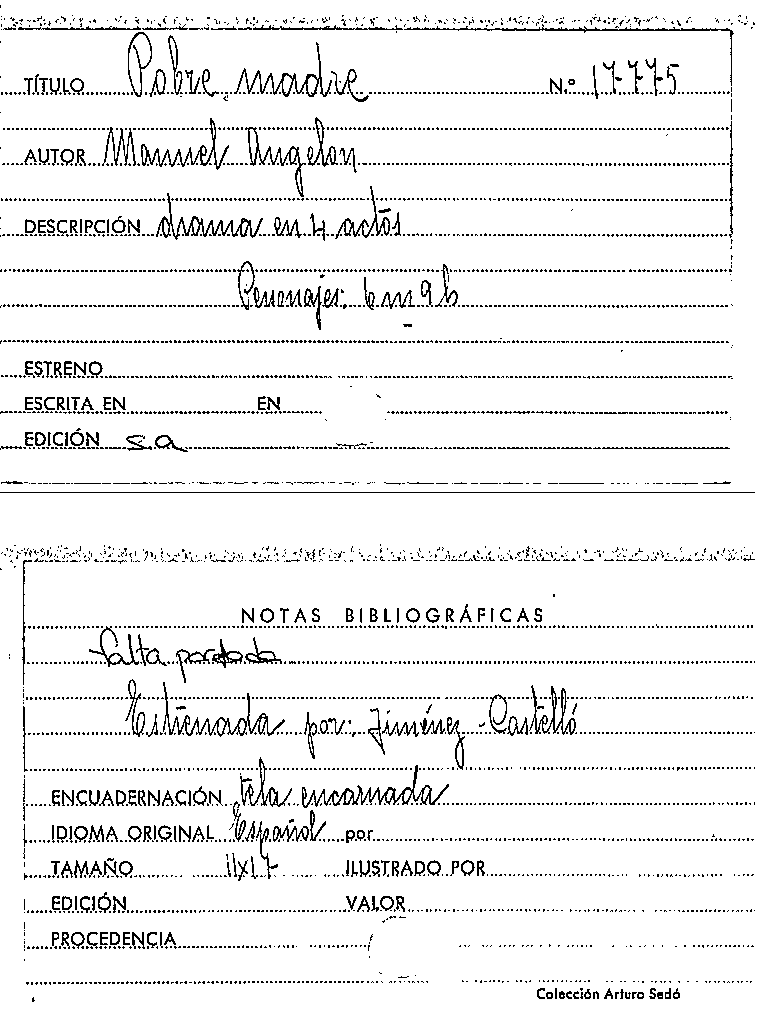 TÍTULO Pobre madre N.º 17775
AUTOR Manuel Angelon
DESCRIPCIÓN drama en 4 actos
Personajes: 6 m 9 h
ESTRENO
ESCRITA EN EN
EDICIÓN s.a
NOTAS BIBLIOGRÁFICAS
falta portada
Estrenada por: Jiménez - Castelló
ENCUADERNACIÓN tela encarnada
IDIOMA ORIGINAL Español por
TAMAÑO 11x17 ILUSTRADO POR
EDICIÓN VALOR
PROCEDENCIA
Colección Arturo Sedó